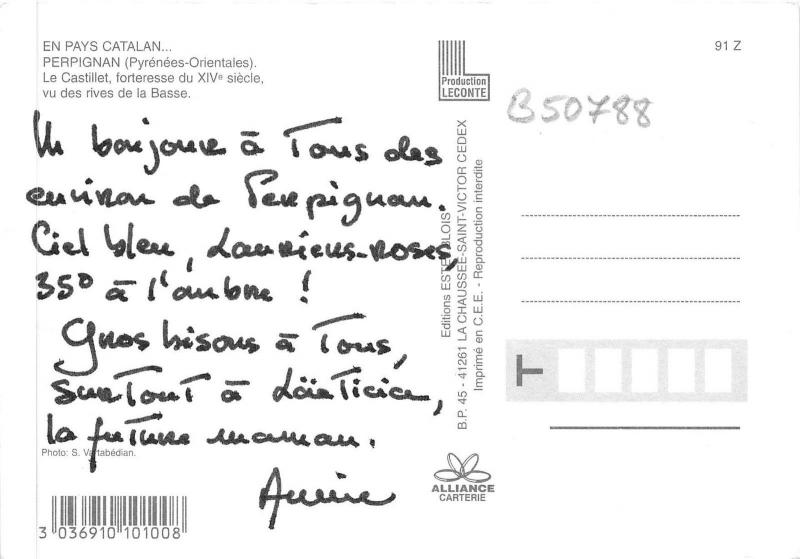 EN PAYS CATALAN...
PERPIGNAN (Pyrénées-Orientales).
Le Castillet, forteresse du XIVe siècle,
vu des rives de la Basse.
Production
LECONTE
91 Z
B50788
Un bonjour à Tous des
environ de Perpignan.
Ciel bleu, Lauriers-roses,
35° à l'ombre !
Gros bisous à Tous,
surTouT à Laëticia,
la future maman.
Annie
Photo: S. Vartabédian.
3 036910 101008
Editions ESTEL BLOIS
B.P. 45 - 41261 LA CHAUSSÉE-SAINT-VICTOR CEDEX
Imprimé en C.E.E. - Reproduction interdite
T
ALLIANCE
CARTERIE